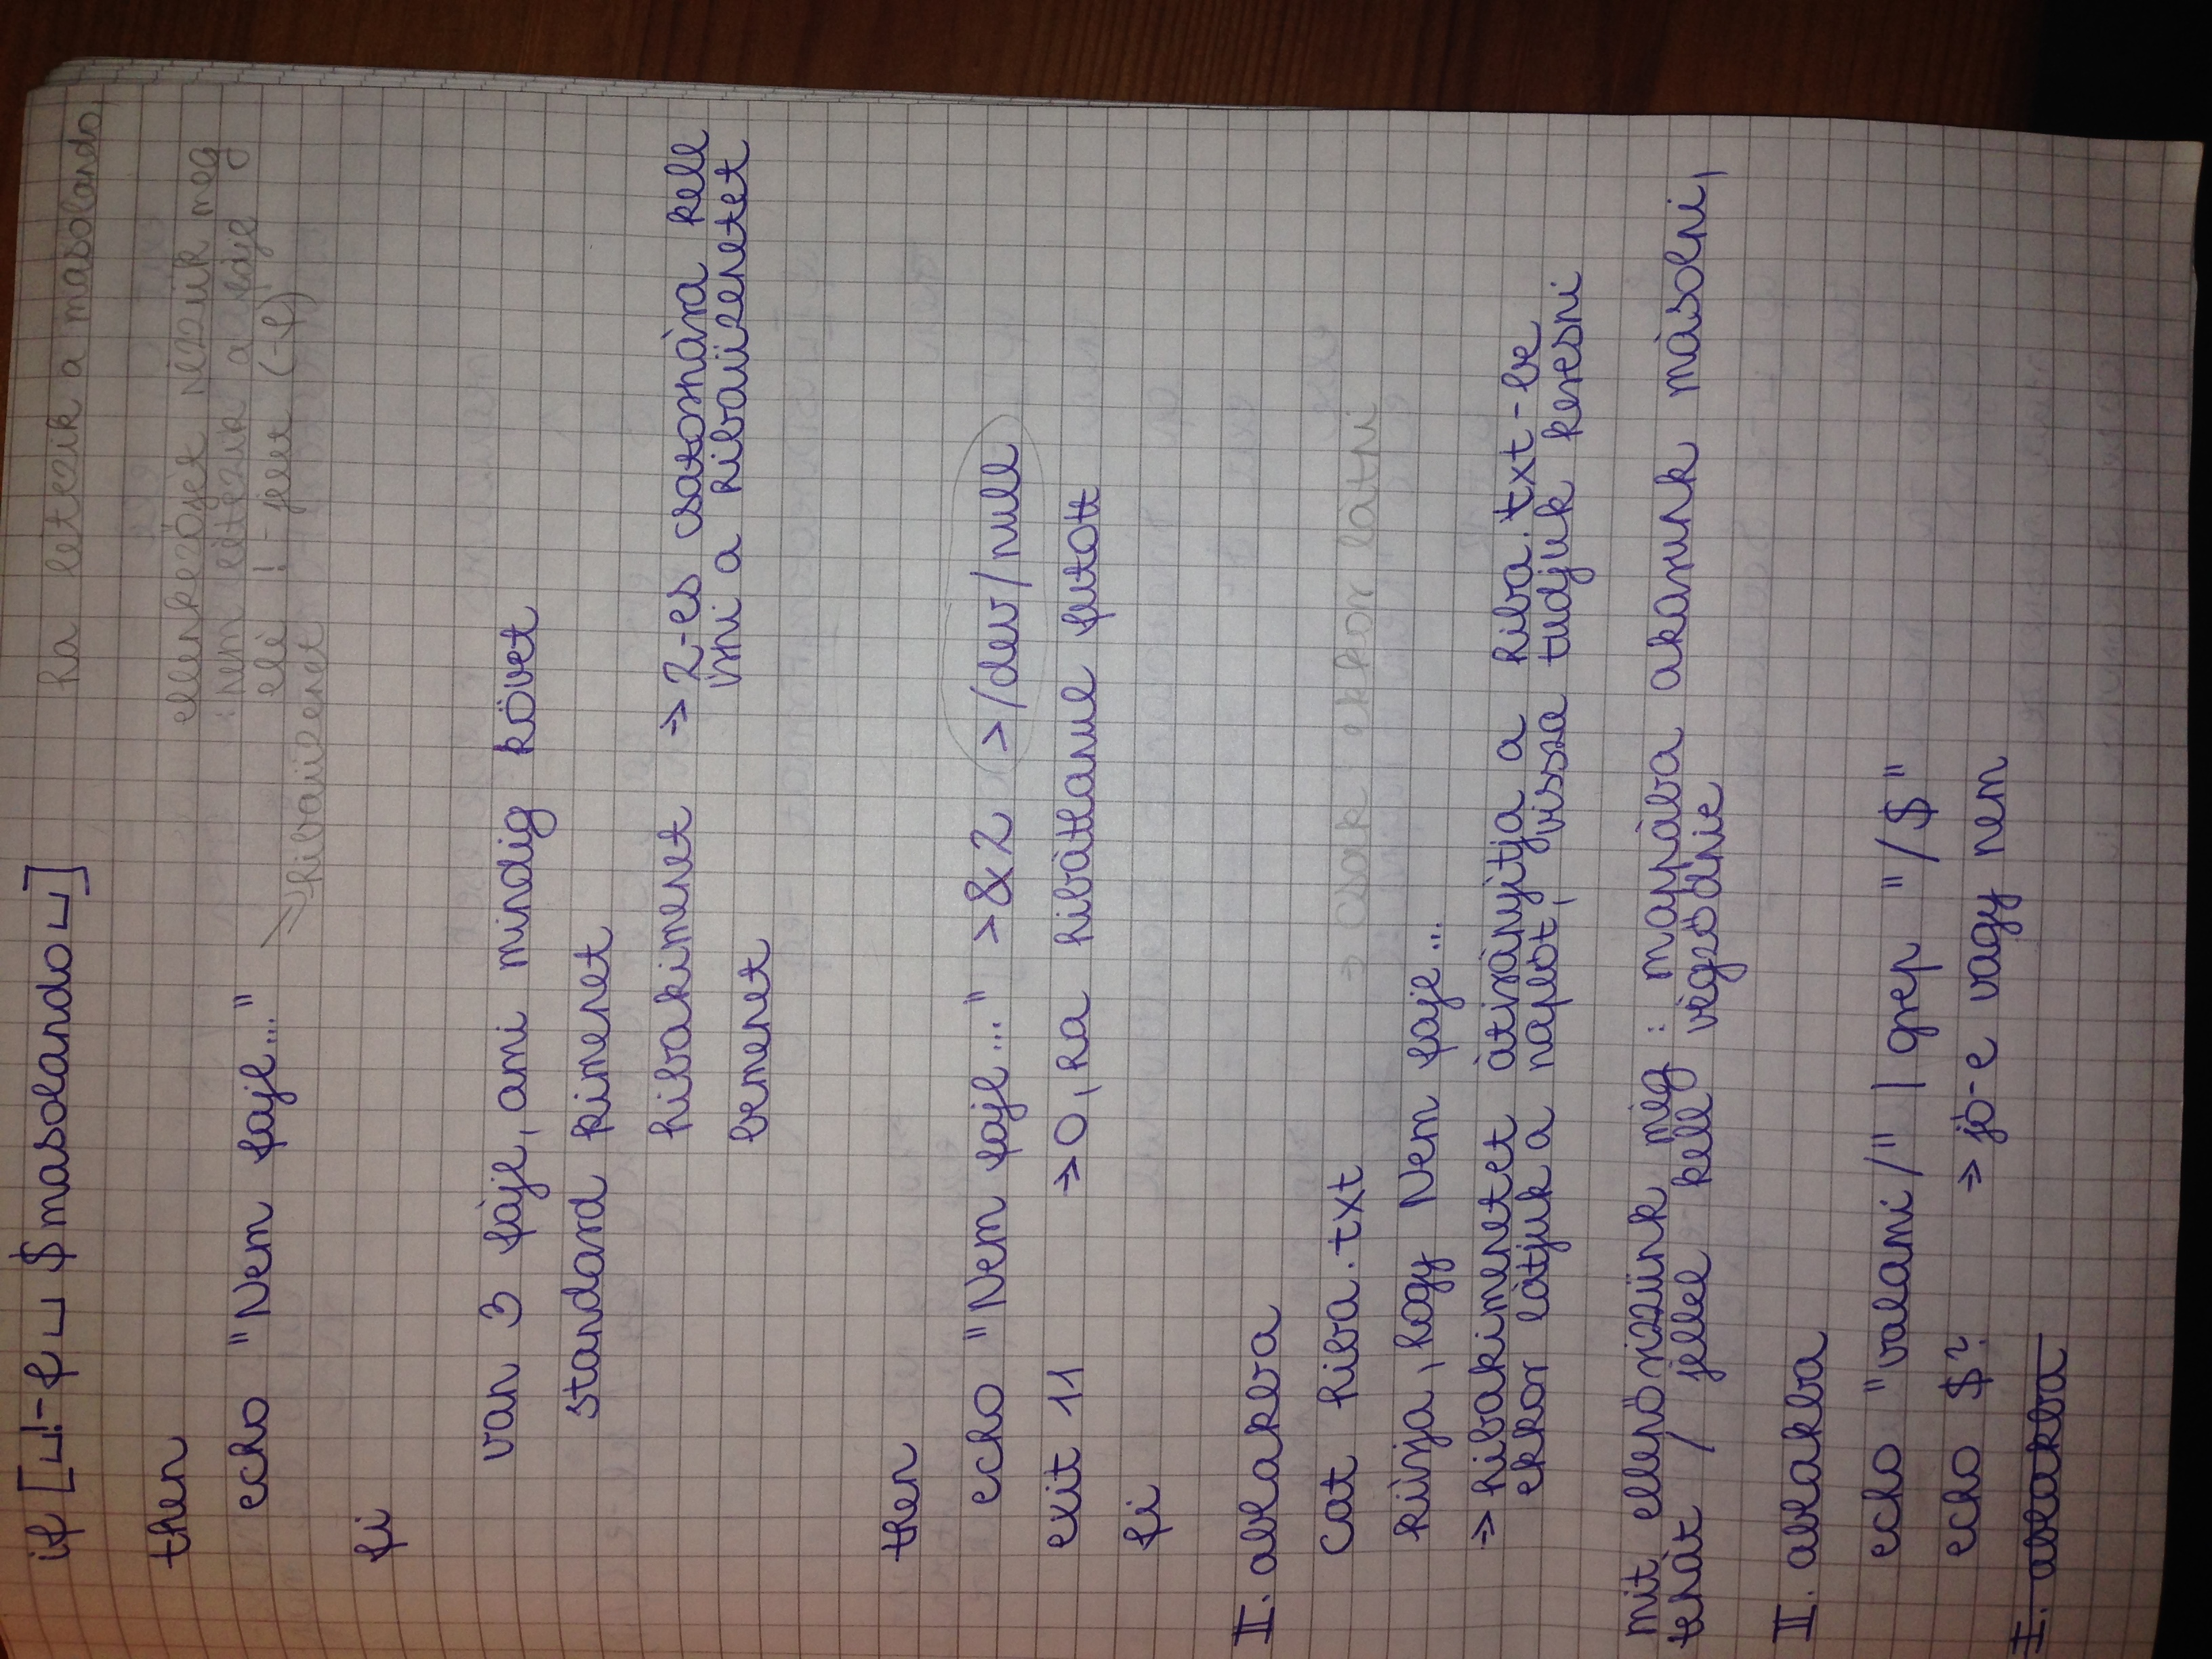 if [␣!-f␣ $masolando␣]
ha letezik a masolando,
then
ellenkezőjét nézzük meg
: nem létezik a fájl
echo "Nem fajl..."
elé ! -jelet (-f)
→ hibaüzenet
fi
van 3 fájl, ami mindig követ
standard kimenet
hibakimenet → 2-es csatornára kell
írni a hibaüzenetet
bemenet
then
echo "Nem fajl..." >&2 >/dev/null
exit 11 → 0, ha hibátlanul futott
fi
II. ablakba
cat hiba.txt → csak ekkor látni
kiírja, hogy Nem fajl...
→ hibakimenetet átirányítja a hiba.txt-be
ekkor látjuk a naplót, vissza tudjuk keresni
mit ellenőrizzünk még : mappába akarunk másolni,
tehát / jellel kell végződnie
II. ablakba
echo "valami/" | grep "/$"
echo $? → jó-e vagy nem
I. ablakba